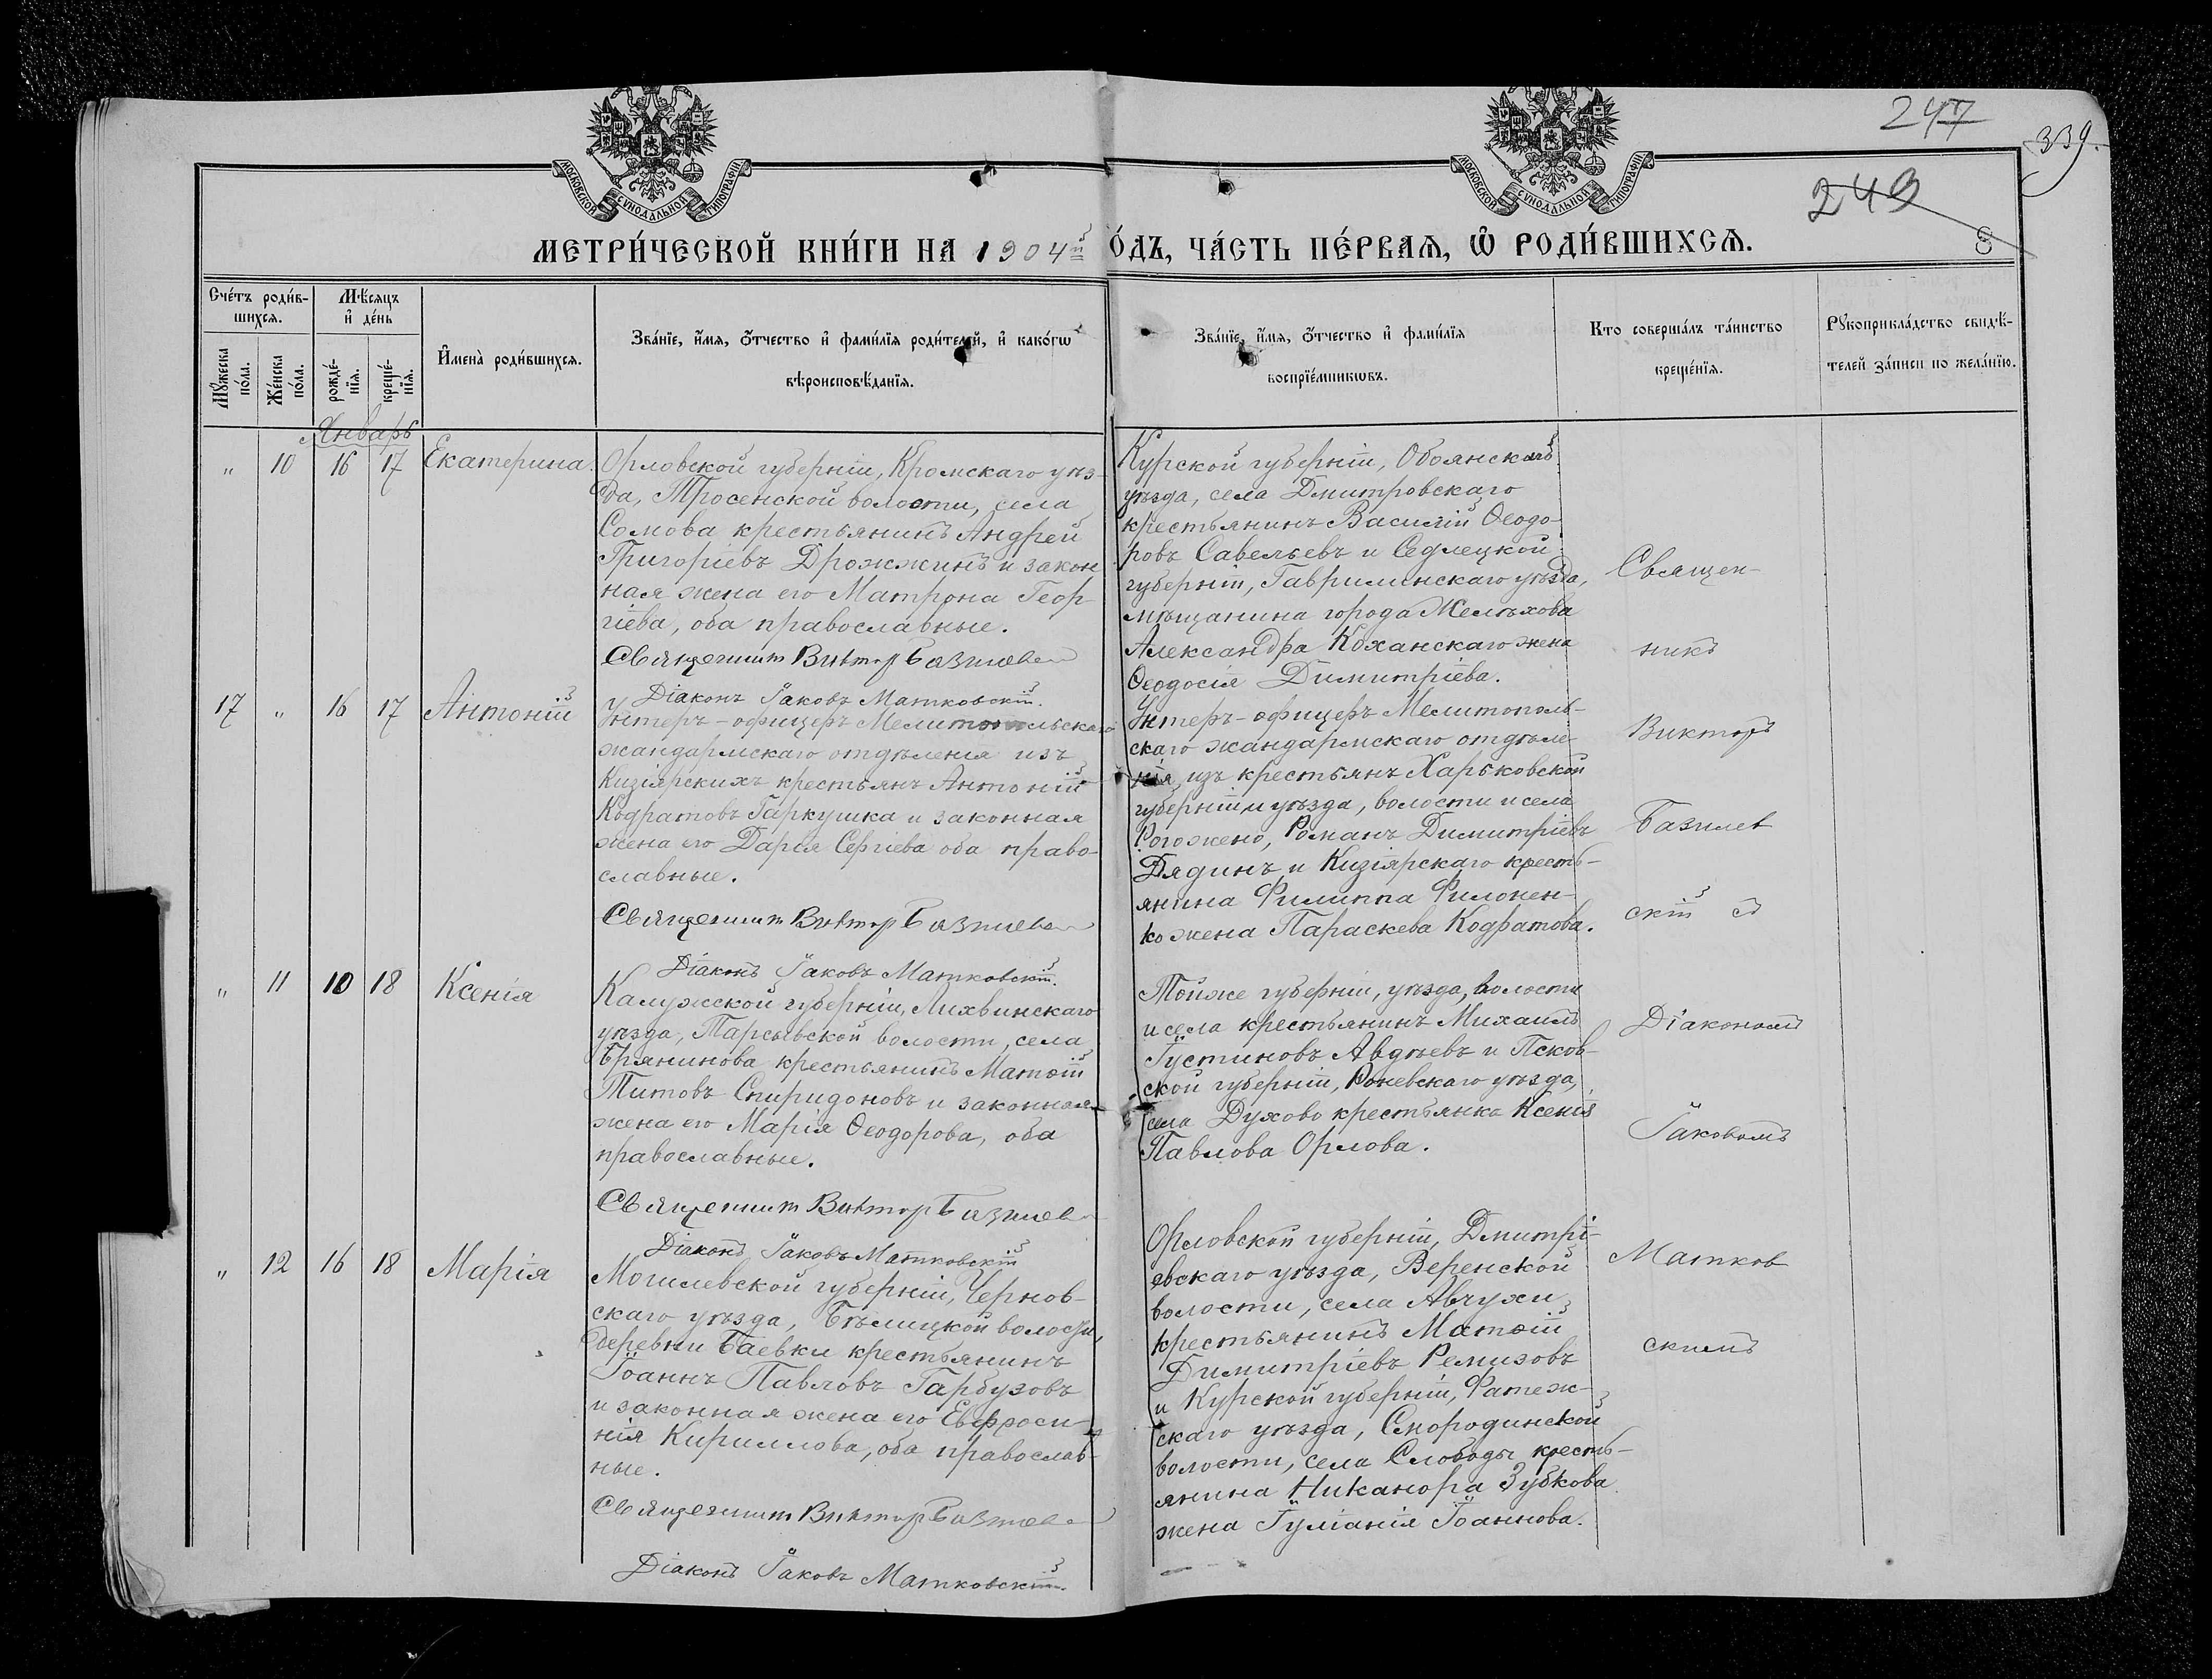 247
339.
249
МОСКОВСКОЙ СѴНОДАЛЬНОЙ ТИПОГРАФІИ
МОСКОВСКОЙ СѴНОДАЛЬНОЙ ТИПОГРАФІИ
МЕТРИ́ЧЕСКОЙ КНИ́ГИ НА 1904й
О́ДЪ, ЧА́СТЬ ПЕ́РВАѦ, Ѡ҆ РОДИ́ВШИХСѦ.
8
Сче́тъ роди́в-
шихсѧ.
Мꙋ́жеска по́ла.
Же́нска по́ла.
Мѣ́сѧцъ
и҆ де́нь
рожде́-
нїѧ.
креще́-
нїѧ.
И҆мена̀ роди́вшихсѧ.
Зва́нїе, и҆́мѧ, ѻ҆́тчество и҆ фами́лїѧ роди́телей, и҆ како́гѡ
вѣроисповѣ́данїѧ.
Зва́нїе, и҆́мѧ, ѻ҆́тчество и҆ фами́лїѧ
воспрїе́мникѡвъ.
Кто соверша́лъ та́инство
креще́нїѧ.
Рꙋкоприкла́дство свидѣ́-
телей за́писи по жела́нїю.
Январь
„ 10 16 17 Екатерина.
Орловской губерніи, Кромскаго уѣз-
да, Тросенской волости, села
Сомова крестьянинъ Андрей
Григоріевъ Дрожжинъ и закон
ная жена его Матрона Геор-
гіева, оба православные.
Священникъ Викторъ Базилев
Діаконъ Іаковъ Матковскій.
Курской губерніи, Обоянскаго
уѣзда, села Дмитровскаго
крестьянинъ Василій Ѳеодо-
ровъ Савельевъ и Седлецкой
губерніи, уѣзда,
мѣщанина города Желѣхова
Александра Коханскаго жена
Ѳеодосія Димитріева.
17 „ 16 17 Антоній
Унтеръ-офицеръ Мелитопольскаго
жандармскаго отдѣленія изъ
Кизіярскихъ крестьянъ Антоній
Кодратовъ Гаркушка и законная
жена его Дарія Сергіева оба право-
славные.
Священникъ Викторъ Базилев
Діаконъ Іаковъ Матковскій.
Унтеръ-офицеръ Мелитополь-
скаго жандармскаго отдѣле-
нія изъ крестьянъ Харьковской
губерніи и уѣзда, волости и села
Рогожено, Романъ Димитріевъ
Дядинъ и Кизіярскаго кресть-
янина Филиппа Филонен-
ко жена Параскева Кодратова.
„ 11 10 18 Ксенія
Калужской губерніи, Лихвинскаго
уѣзда, волости, села
Брянинова крестьянинъ Матѳій
Титовъ Спиридоновъ и законная
жена его Марія Ѳеодорова, оба
православные.
Священникъ Викторъ Базилев
Діаконъ Іаковъ Матковскій
Тойже губерніи, уѣзда, волости
и села крестьянинъ Михаилъ
Іустиновъ Авдѣевъ и Псков-
ской губерніи, уѣзда,
села Духово крестьянка Ксенія
Павлова Орлова.
„ 12 16 18 Марія
Могилевской губерніи, Чернов-
скаго уѣзда, Бѣлицкой волости,
деревни Баевки крестьянинъ
Іоаннъ Павловъ Гарбузовъ
и законная жена его Евфроси-
нія Кириллова, оба православ-
ные.
Священникъ Викторъ Базилев
Діаконъ Іаковъ Матковскій.
Орловской губерніи, Дмитрі-
евскаго уѣзда, Веренской
волости, села Авчухи
крестьянинъ Матѳій
Димитріевъ Ремизовъ
и Курской губерніи, Фатеж-
скаго уѣзда, Смородинской
волости, села Слободы кресть-
янина Никанора Зубкова
жена Іуліанія Іоаннова.
Священ-
никъ
Викторъ
Базилев
скій съ
Діакономъ
Іаковомъ
Матков
скимъ